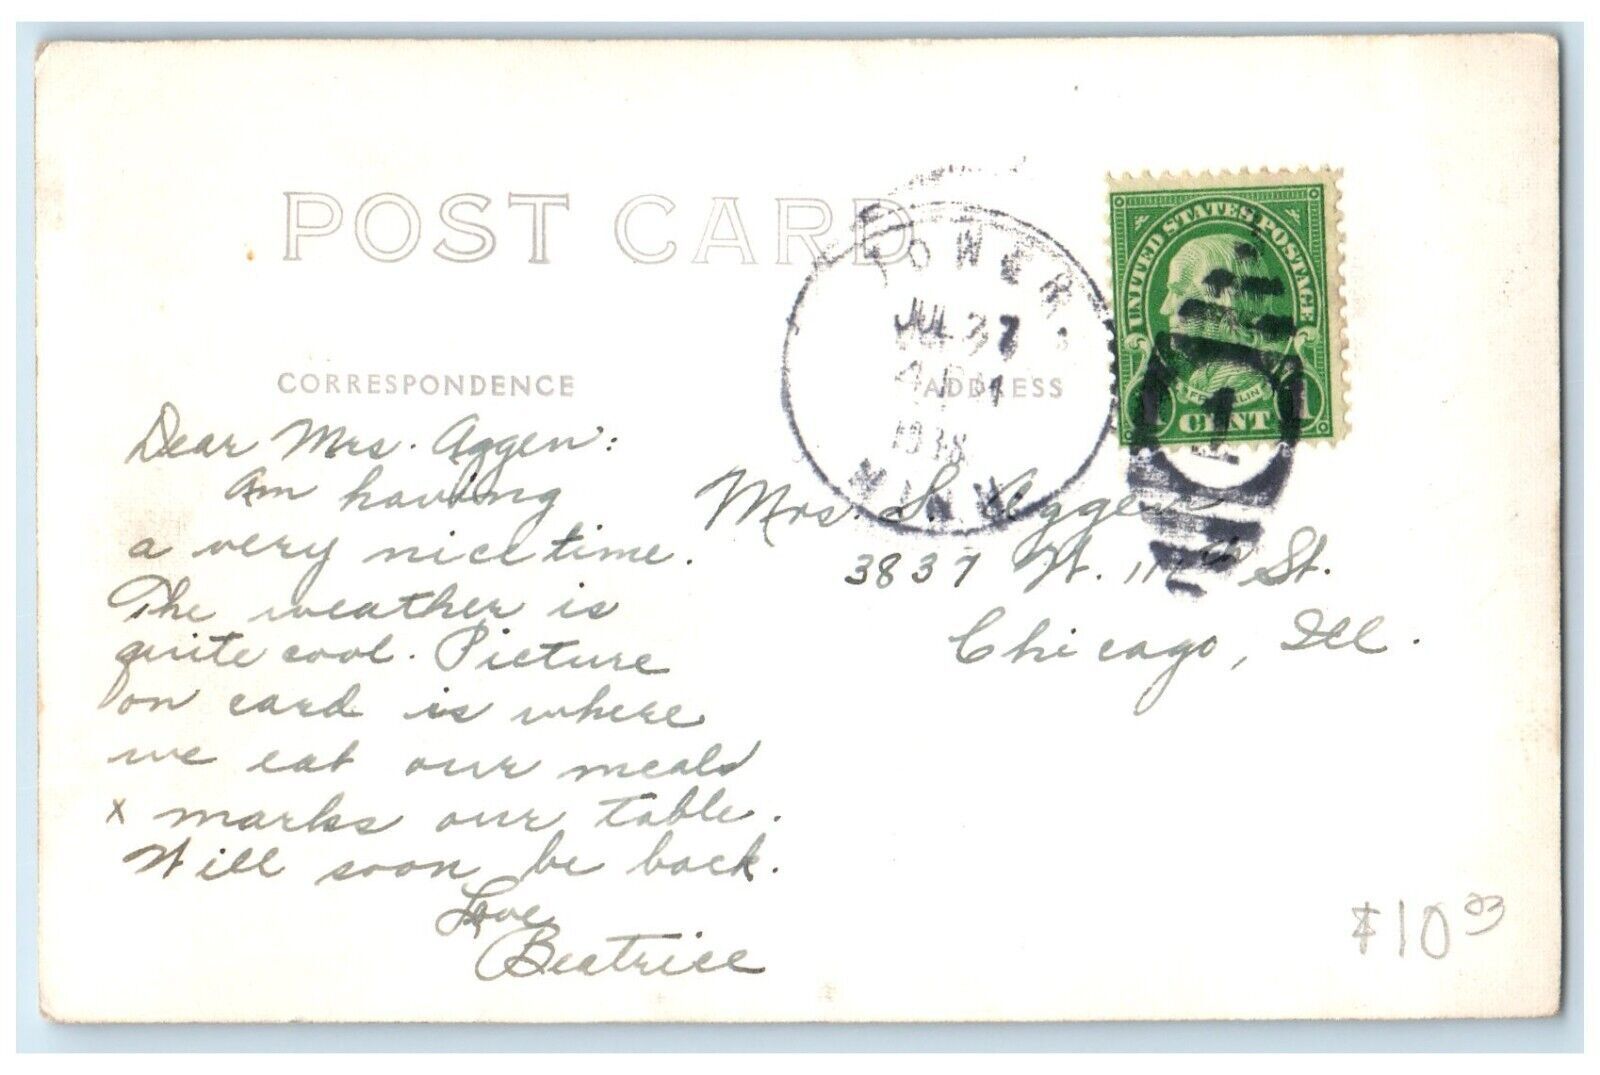 POST CARD
TOWER
JUL 27
4 PM
1938
MINN
UNITED STATES POSTAGE
FRANKLIN
1 CENT 1
1
CORRESPONDENCE
ADDRESS
Dear Mrs. Aggen:
Am having
a very nice time.
The weather is
quite cool. Picture
on card is where
we eat our meals
x marks our table.
Will soon be back.
Love
Beatrice
Mrs. S. Aggen
3837 W. St.
Chicago, Ill.
$10